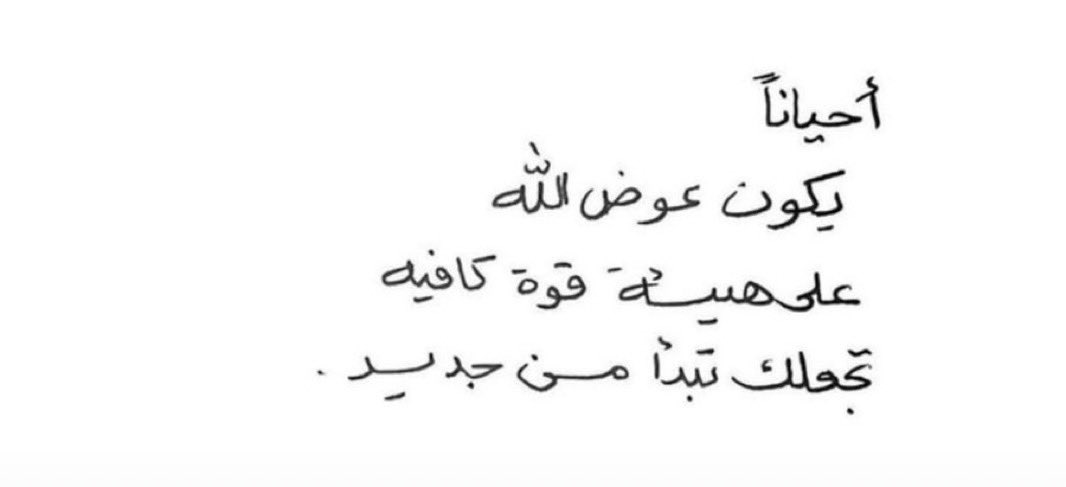 أحياناً
يكون عوض الله
على هيئة قوة كافيه
تجعلك تبدأ من جديد .